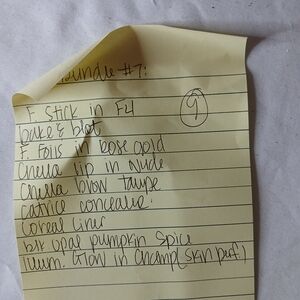 Bundle #7:
9
F Stick in F4
bake & blot
F. Foils in Rose gold
Cnella lip in Nude
Cnella brow taupe
catrice concealer
Loreal liner
blk opal pumpkin spice
Illum. Glow in Champ (skin perf.)